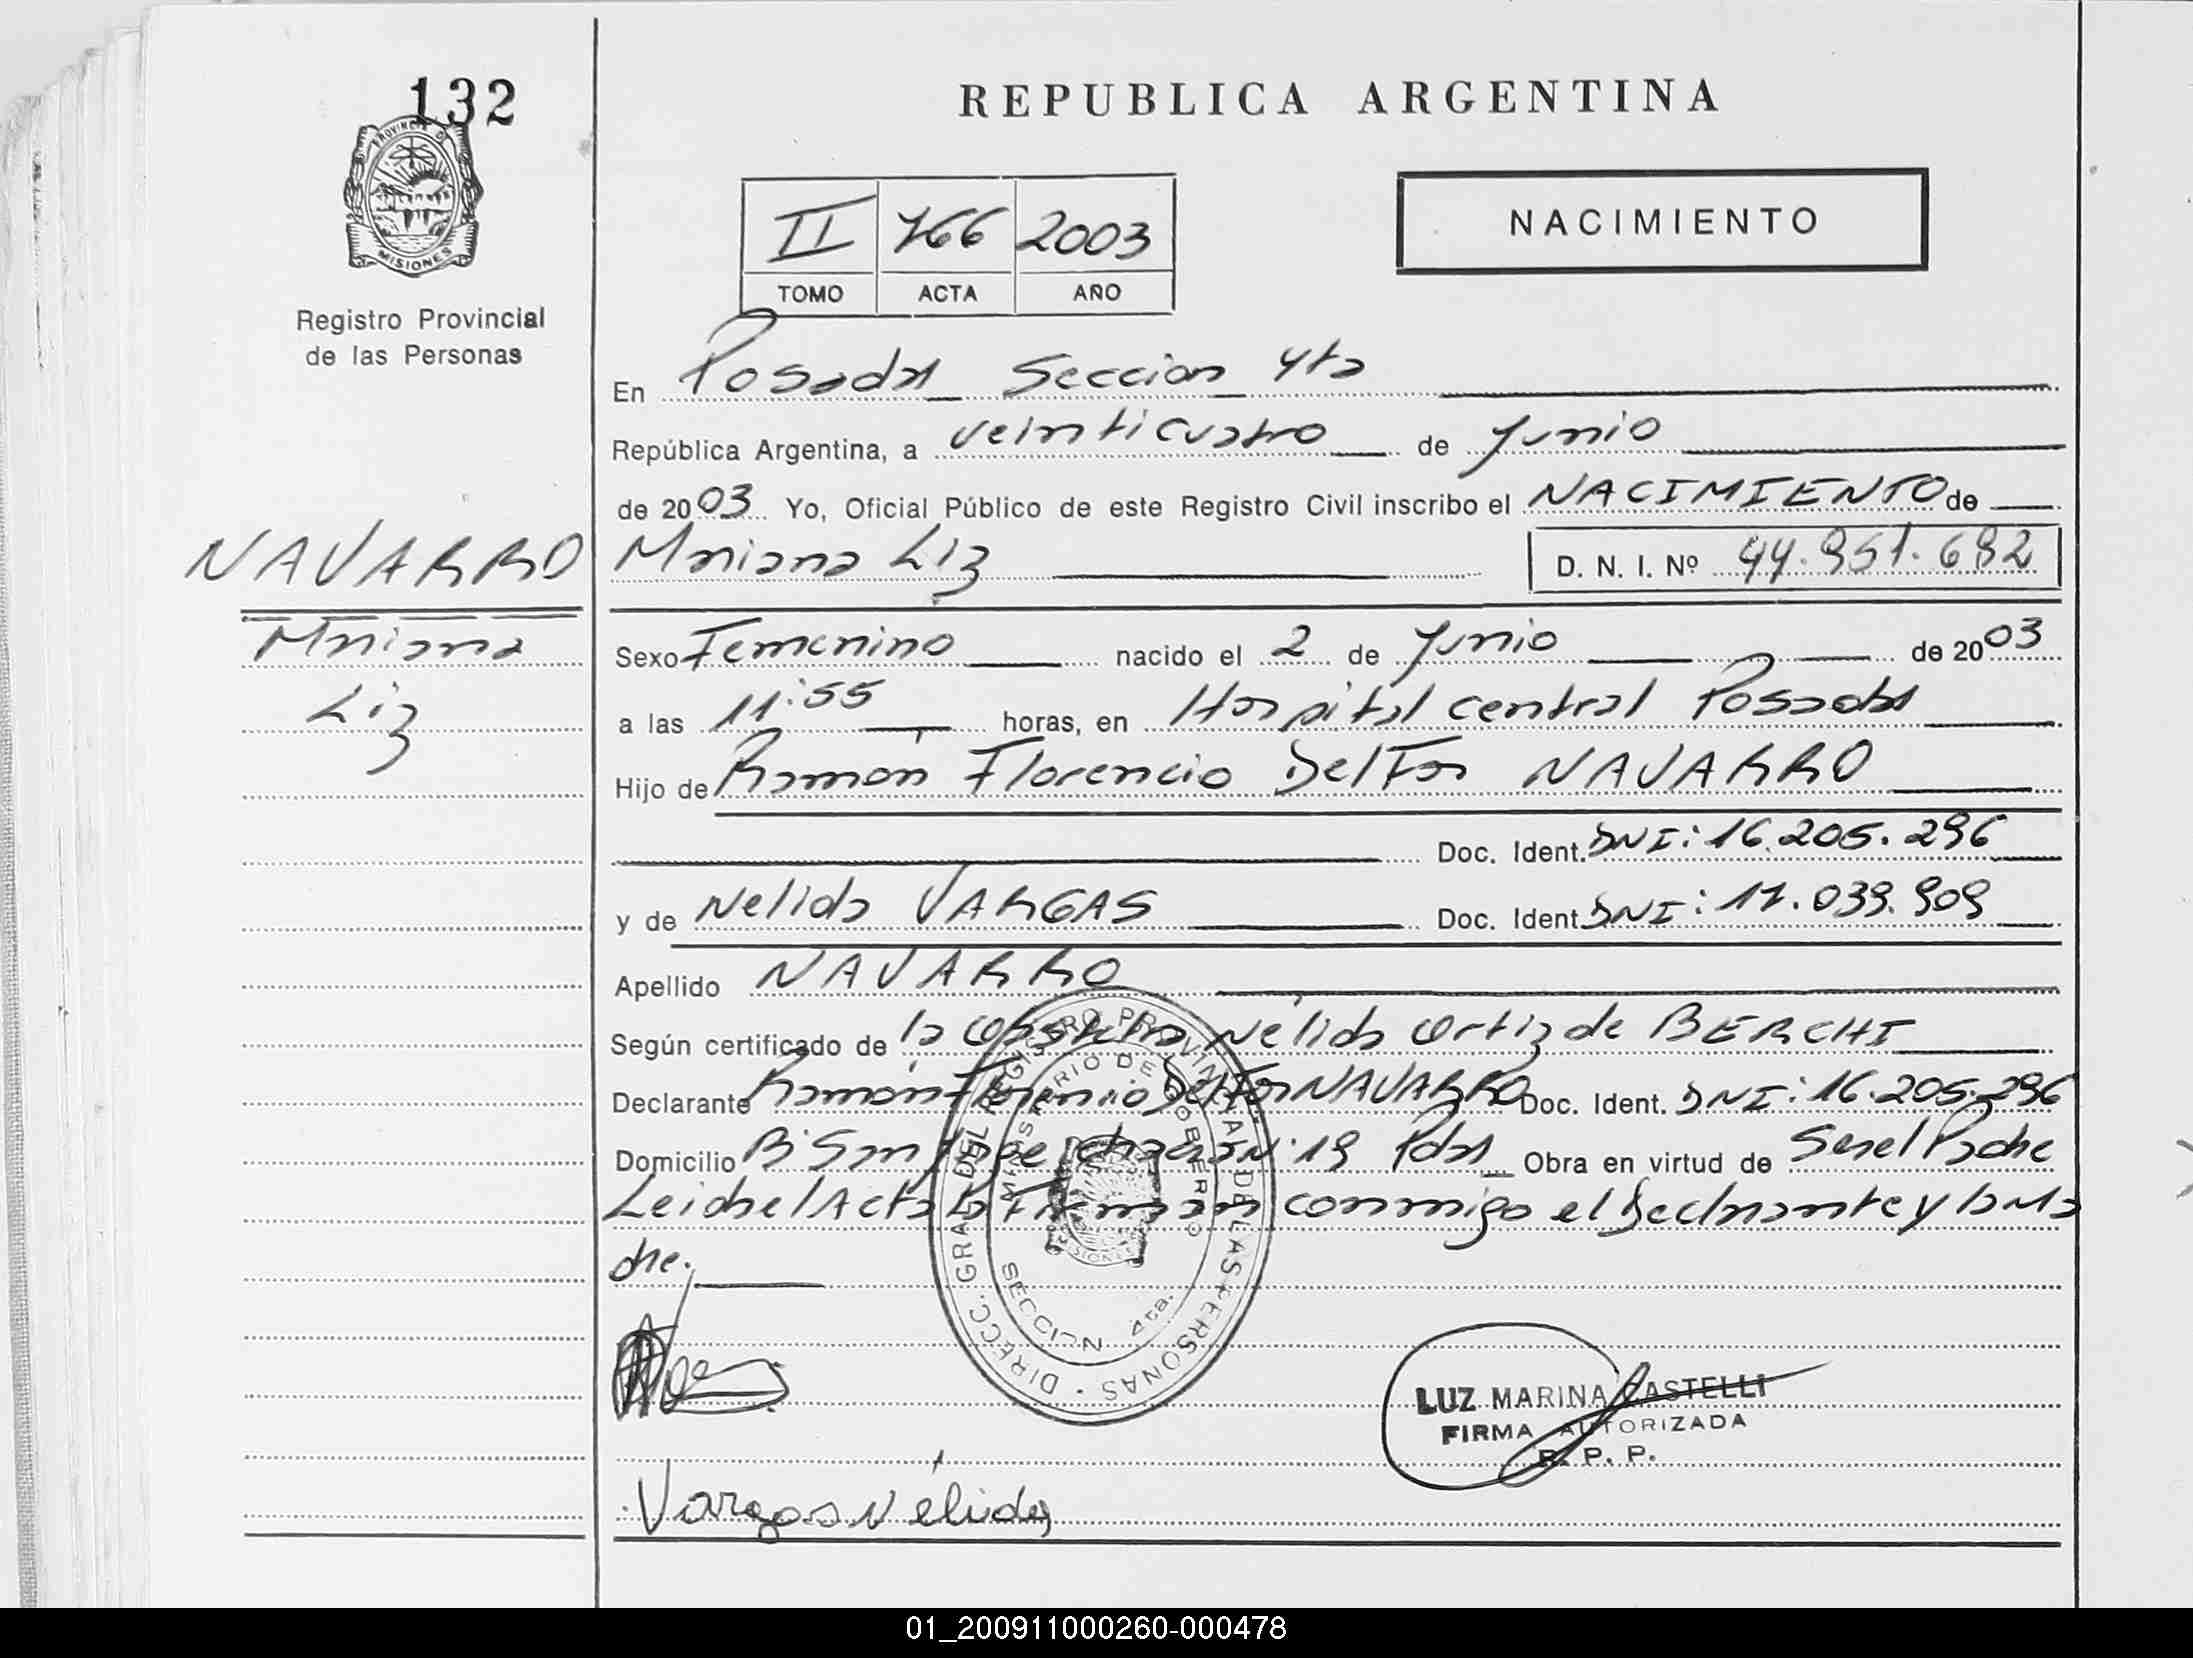 132
PROVINCIA DE
MISIONES
Registro Provincial
de las Personas
REPUBLICA ARGENTINA
II 766 2003
TOMO ACTA AÑO
NACIMIENTO
En Posadas Seccion 4ta
República Argentina, a veinticuatro de Junio
de 2003 Yo, Oficial Público de este Registro Civil inscribo el NACIMIENTO de
NAVARRO
Mariana
Liz
Mariana Liz D. N. I. Nº 44.951.692
Sexo Femenino nacido el 2 de Junio de 2003
a las 11:55 horas, en Hospital central Posadas
Hijo de Ramón Florencio DelFor NAVARRO
Doc. Ident. DNI: 16.205.296
y de Nelida VARGAS Doc. Ident. DNI: 17.039.909
Apellido NAVARRO
Según certificado de la Nélida Ortiz de BERCHI
Declarante Ramón Florencio DelFor NAVARRO Doc. Ident. DNI: 16.205.296
Domicilio Bº San Jorge Nº 19 Pdas Obra en virtud de Ser el Padre
Leida el Acta la Firman conmigo el Declarante y la Ma
dre.
DIRECC. GRAL. DEL REGISTRO PROVINCIAL DE LAS PERSONAS
MINISTERIO DE GOBIERNO
SECCION 4ta.
MISIONES
LUZ MARINA CASTELLI
FIRMA AUTORIZADA
R. P. P.
Vargas Nélida
01_200911000260-000478